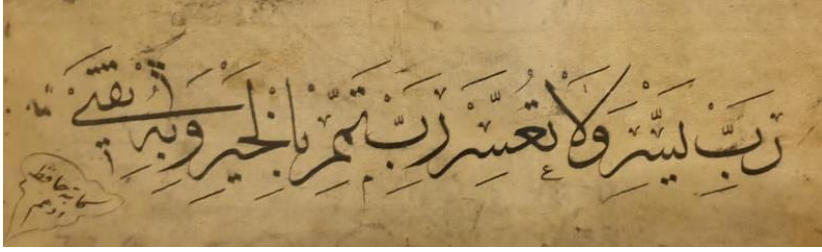 رَبِّ يَسِّرْ وَلَا تُعَسِّرْ رَبِّ تَمِّمْ بِالْخَيْرِ وَبِهِ ثِقَتِي
حافظ